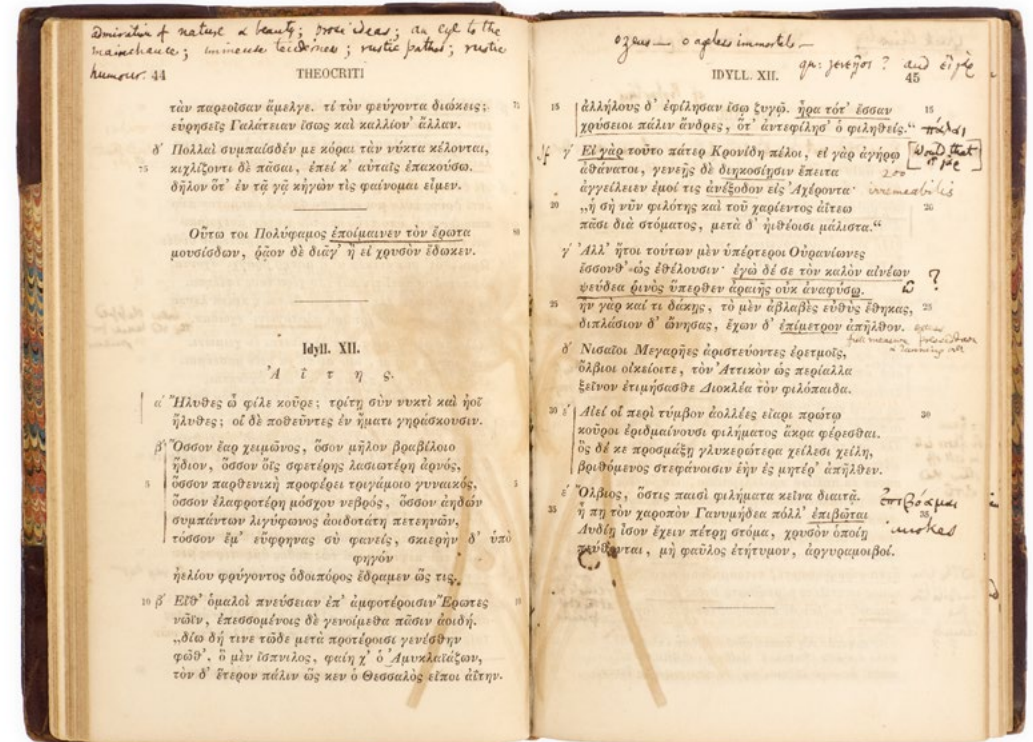 admiration of nature & beauty; prose ideas; an eye to the
mainchance; immense tenderness; rustic pathos; rustic
humour. 44
THEOCRITI
τὰν παρεοῖσαν ἄμελγε. τί τὸν φεύγοντα διώκεις; 75
εὑρησεῖς Γαλάτειαν ἴσως καὶ καλλίον' ἄλλαν.
δ' Πολλαὶ συμπαίσδέν με κόραι τὰν νύκτα κέλονται,
75 κιχλίζοντι δὲ πᾶσαι, ἐπεί κ' αὐταῖς ἐπακούσω.
δῆλον ὅτ' ἐν τᾷ γᾷ κἠγών τὶς φαίνομαι εἶμεν.
Οὕτω τοι Πολύφαμος ἐποίμαινεν τὸν ἔρωτα 80
μουσίσδων, ῥᾷον δὲ διᾶγ' ἢ εἰ χρυσὸν ἔδωκεν.
Idyll. XII.
Ἀΐτης.
α' Ἤλυθες ὦ φίλε κοῦρε; τρίτῃ σὺν νυκτὶ καὶ ἠοῖ
ἤλυθες; οἱ δὲ ποθεῦντες ἐν ἤματι γηράσκουσιν.
β' Ὅσσον ἔαρ χειμῶνος, ὅσον μῆλον βραβίλοιο
ἥδιον, ὅσσον ὄϊς σφετέρης λασιωτέρη ἀρνός,
5 ὅσσον παρθενικὴ προφέρει τριγάμοιο γυναικός, 5
ὅσσον ἐλαφροτέρη μόσχου νεβρός, ὅσσον ἀηδὼν
συμπάντων λιγύφωνος ἀοιδοτάτη πετεηνῶν,
τόσσον ἔμ' εὔφρηνας σὺ φανείς, σκιερὴν δ' ὑπὸ
φηγόν
ἠελίου φρύγοντος ὁδοιπόρος ἔδραμεν ὥς τις.
10 β' Εἴθ' ὁμαλοὶ πνεύσειαν ἐπ' ἀμφοτέροισιν Ἔρωτες 10
νῶϊν, ἐπεσσομένοις δὲ γενοίμεθα πᾶσιν ἀοιδή.
„δίω δή τινε τῶδε μετὰ προτέροισι γενέσθην
φῶθ', ὁ μὲν ἴσπνιλος, φαίη χ' ὁ Ἀμυκλαϊάζων,
τὸν δ' ἕτερον πάλιν ὥς κεν ὁ Θεσσαλὸς εἴποι ἀΐτην.
o zeus — o ageless immortals —
qu: γενεῇσι? and εἰ γὰρ
IDYLL. XII. 45
15 ἀλλήλους δ' ἐφίλησαν ἴσῳ ζυγῷ. ἦρα τότ' ἔσσαν 15
χρύσειοι πάλιν ἄνδρες, ὅτ' ἀντεφίλησ' ὁ φιληθείς.“ πάλαι
γ' Εἰ γὰρ τοῦτο πάτερ Κρονίδη πέλοι, εἰ γὰρ ἀγήρῳ [Would that
ἀθάνατοι, γενεῇς δὲ διηκοσίῃσιν ἔπειτα 200
ἀγγείλειεν ἐμοί τις ἀνέξοδον εἰς Ἀχέροντα· irremeabilis
20 „ἡ σὴ νῦν φιλότης καὶ τοῦ χαρίεντος ἀΐτεω 20
πᾶσι διὰ στόματος, μετὰ δ' ἠϊθέοισι μάλιστα.“
γ' Ἀλλ' ἤτοι τούτων μὲν ὑπέρτεροι Οὐρανίωνες
ἔσσονθ' ὡς ἐθέλουσιν· ἐγὼ δέ σε τὸν καλὸν αἰνέων
ψεύδεα ῥινὸς ὕπερθεν ἀραιῆς οὐκ ἀναφύσω. ω ?
25 ἢν γὰρ καί τι δάκῃς, τὸ μὲν ἀβλαβὲς εὐθὺς ἔθηκας, 25
διπλάσιον δ' ὤνησας, ἔχων δ' ἐπίμετρον ἀπῆλθον.
full measure
δ' Νισαῖοι Μεγαρῆες ἀριστεύοντες ἐρετμοῖς,
ὄλβιοι οἰκείοιτε, τὸν Ἀττικὸν ὡς περίαλλα
ξεῖνον ἐτιμήσασθε Διοκλέα τὸν φιλόπαιδα.
30 ε' Αἰεί οἱ περὶ τύμβον ἀολλέες εἴαρι πρώτῳ 30
κοῦροι ἐριδμαίνουσι φιλήματος ἄκρα φέρεσθαι.
ὃς δέ κε προσμάξῃ γλυκερώτερα χείλεσι χείλη,
βριθόμενος στεφάνοισιν ἑὴν ἐς μητέρ' ἀπῆλθεν.
ε' Ὄλβιος, ὅστις παισὶ φιλήματα κεῖνα διαιτᾷ.
35 ἦ πῃ τὸν χαροπὸν Γανυμήδεα πόλλ' ἐπιβῶται 35
Λυδίῃ ἶσον ἔχειν πέτρῃ στόμα, χρυσὸν ὁποίῃ invokes
πεύθονται, μὴ φαῦλος ἐτήτυμον, ἀργυραμοιβοί.